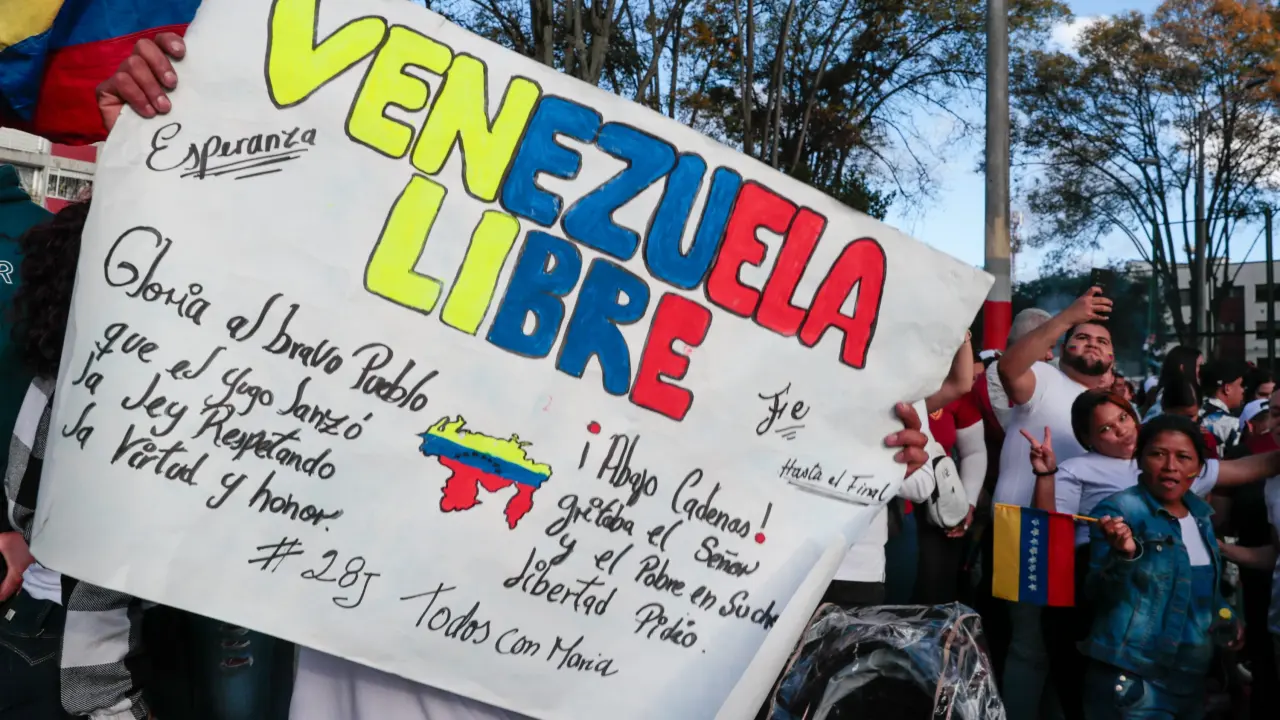 VENEZUELA
LIBRE
Esperanza
Gloria al bravo Pueblo
que el yugo lanzó
la ley Respetando
la virtud y honor.
Fe
Hasta el Final
¡Abajo Cadenas!
gritaba el Señor
y el Pobre en Su cho
libertad Pidio.
# 28J
Todos con Maria
R